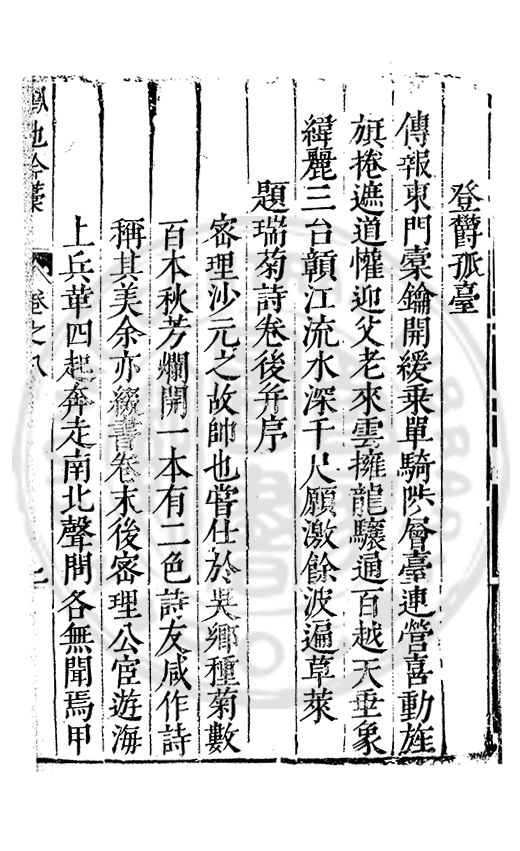 登欝孤臺
傳報東門橐鑰開緩乗單騎陟層臺連營喜動旌
旗捲遮道懽迎父老來雲擁龍驤通百越天垂象
緯麗三台贑江流水深千尺願激餘波遍草萊
題瑞菊詩卷後并序
密理沙元之故帥也嘗仕於吳鄉種菊數
百本秋芳爛開一本有二色詩友咸作詩
稱其美余亦綴書卷末後密理公宦遊海
上兵華四起奔走南北聲問各無聞焉甲
鳳池吟藁 卷之八